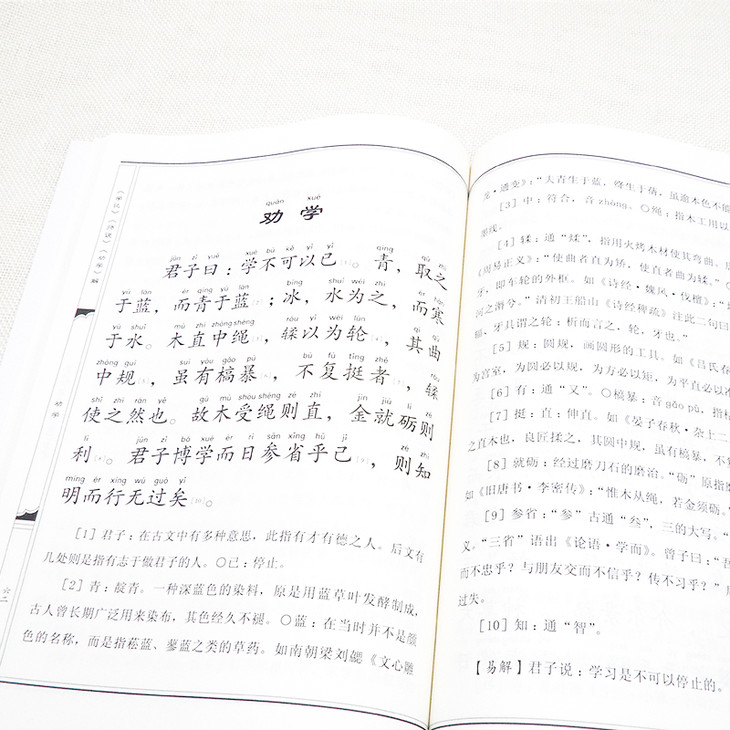 quàn xué
劝学
jūn zǐ yuē xué bù kě yǐ yǐ qīng qǔ zhī
君子曰：学不可以已[1]。青，取之
yú lán ér qīng yú lán bīng shuǐ wéi zhī ér hán
于蓝，而青于蓝[2]；冰，水为之，而寒
yú shuǐ mù zhí zhòng shéng róu yǐ wéi lún qí qū
于水。木直中绳[3]，𫐓以为轮[4]，其曲
zhòng guī suī yǒu gǎo pù bù fù tǐng zhě róu
中规[5]，虽有槁暴[6]，不复挺者[7]，𫐓
shǐ zhī rán yě gù mù shòu shéng zé zhí jīn jiù lì zé
使之然也。故木受绳则直，金就砺则
lì jūn zǐ bó xué ér rì sān xǐng hū jǐ zé zhì
利[8]。君子博学而日参省乎己[9]，则知
míng ér xíng wú guò yǐ
明而行无过矣[10]。
[1] 君子：在古文中有多种意思，此指有才有德之人。后文有
几处则是指有志于做君子的人。〇已：停止。
[2] 青：靛青。一种深蓝色的染料，原是用蓝草叶发酵制成，
古人曾长期广泛用来染布，其色经久不褪。〇蓝：在当时并不是颜
色的名称，而是指菘蓝、蓼蓝之类的草药。如南朝梁刘勰《文心雕
劝学
六二
龙·通变》：“夫青生于蓝，绛生于蒨，虽逾本色不能
[3] 中：符合，音zhòng。〇绳：指木工用以
墨线。
[4] 𫐓：通“煣”，指用火烤木材使其弯曲。
《周易正义》：“使曲者直为矫，使直者曲为𫐓。”
牙，即车轮的外框。如《诗经·魏风·伐檀》：“
河之漘兮。”清初王船山《诗经稗疏》注此二句曰
辐，牙其谓之轮；析而言之，轮，牙也。”
[5] 规：圆规，画圆形的工具。如《吕氏春
为宫室，为圆必以规，为方必以矩，为平直必以准
[6] 有：通“又”。〇槁暴：音gǎo pù，指枯
[7] 挺：直；伸直。如《晏子春秋·杂上二
之直木也，良匠揉之，其圆中规，虽有槁暴，不
[8] 就砺：经过磨刀石的磨治。“砺”原指磨
如《旧唐书·李密传》：“惟木从绳，若金须砺。”
[9] 参省：“参”古通“叁”，三的大写。“
义。“三省”语出《论语·学而》。曾子曰：“吾
而不忠乎？与朋友交而不信乎？传不习乎？”
过失。
[10] 知：通“智”。
【易解】君子说：学习是不可以停止的。